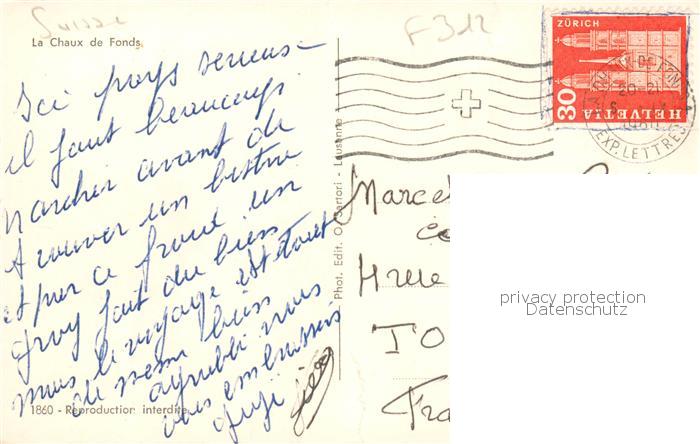 Suisse
F312
La Chaux de Fonds
Ici pays serieux
il faut beaucoup
Marcher avant de
trouver un bistro
et par ce froid un
grog fait du bien
mais le voyage est tout
de même bien
agréable nous
vous embrassons
1860 - Reproduction interdite
Phot. Edit. O. Sartori - Lausanne
ZÜRICH
30
HELVETIA
EXP. LETTRES
Marcel
TO
Fra
privacy protection
Datenschutz